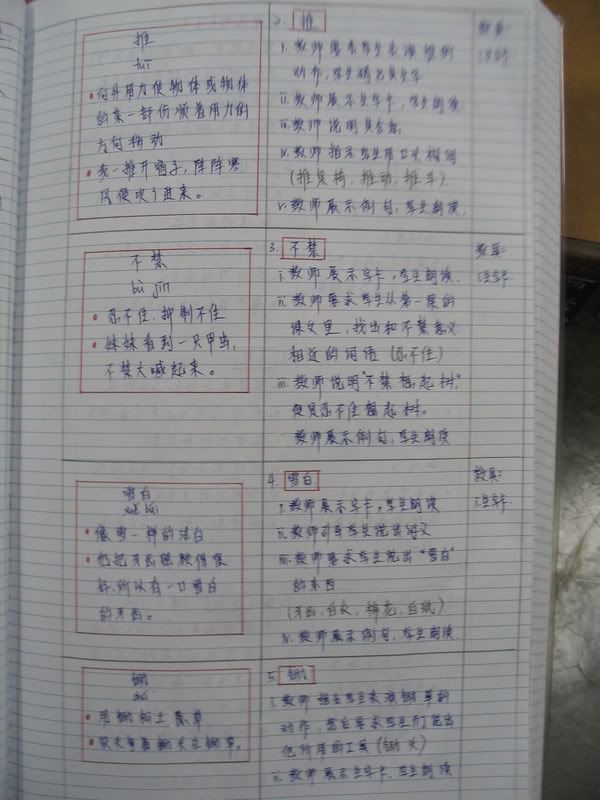 推
tuī
• 向外用力使物体或物体
的某一部份顺着用力的
方向移动
• 一推开窗子，阵阵寒
风便吹了进来。
2. 推
i. 教师
动作，学生
ii. 教师展示生字卡，学生朗读
iii. 教师说明其含意
iv. 教师指示学生用口头
(推桌椅，推动，推车)
v. 教师展示例句，学生朗读.
教具:
不禁
bù jīn
• 忍不住，抑制不住
• 妹妹看到一只甲虫，
不禁大喊起来。
3. 不禁
i. 教师展示字卡，学生朗读.
ii. 教师要求学生从第一集的
课文里，找出和不禁意义
相近的词语 (忍不住)
iii. 教师说明"不禁想起树"
便是忍不住想起树。
教师展示例句，学生朗读
教具:
i.生字卡
雪白
xuě bái
• 像雪一样的洁白
• 他把牙齿照顾得很
好，所以有一口雪白
的牙齿。
4. 雪白
i. 教师展示字卡，学生朗读
ii. 教师引导学生说出词义
iii. 教师要求学生说出"雪白"
的东西
(牙齿，白衣，棉花，白纸)
iv. 教师展示例句，学生朗读.
教具:
i.生字卡
锄
chú
• 用锄松土除草
• 农夫 锄头在锄草。
5. 锄
i. 教师 学生表演锄草的
动作，然后要求学生们说出
他所用的工具 (锄头)
ii. 教师展示生字卡，学生朗读